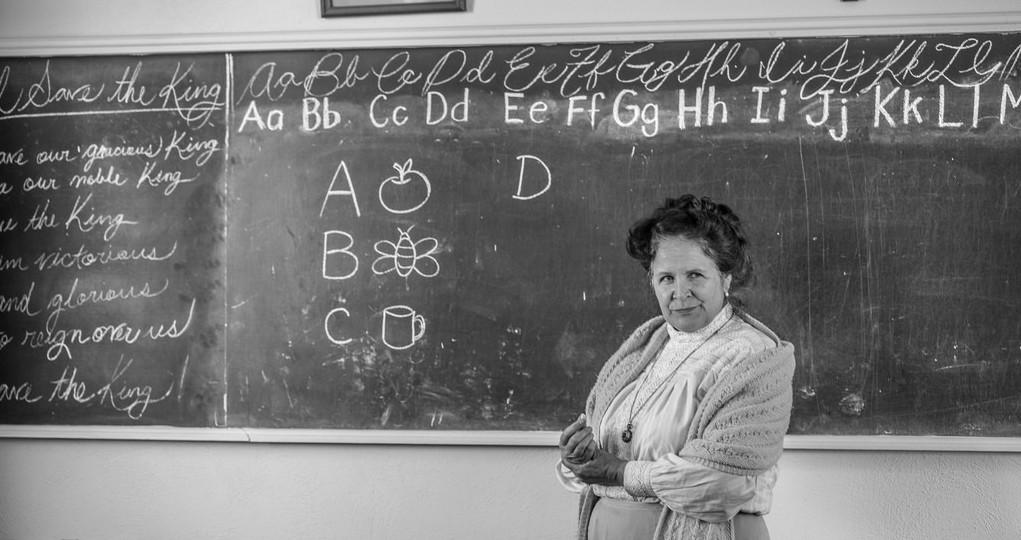 Save the King
our gracious King
our noble King
the King
victorious
and glorious
reign over us
the King!
Aa Bb Cc Dd Ee Ff Gg Hh Ii Jj Kk Ll
Aa Bb Cc Dd Ee Ff Gg Hh Ii Jj Kk Ll M
A D
B
C